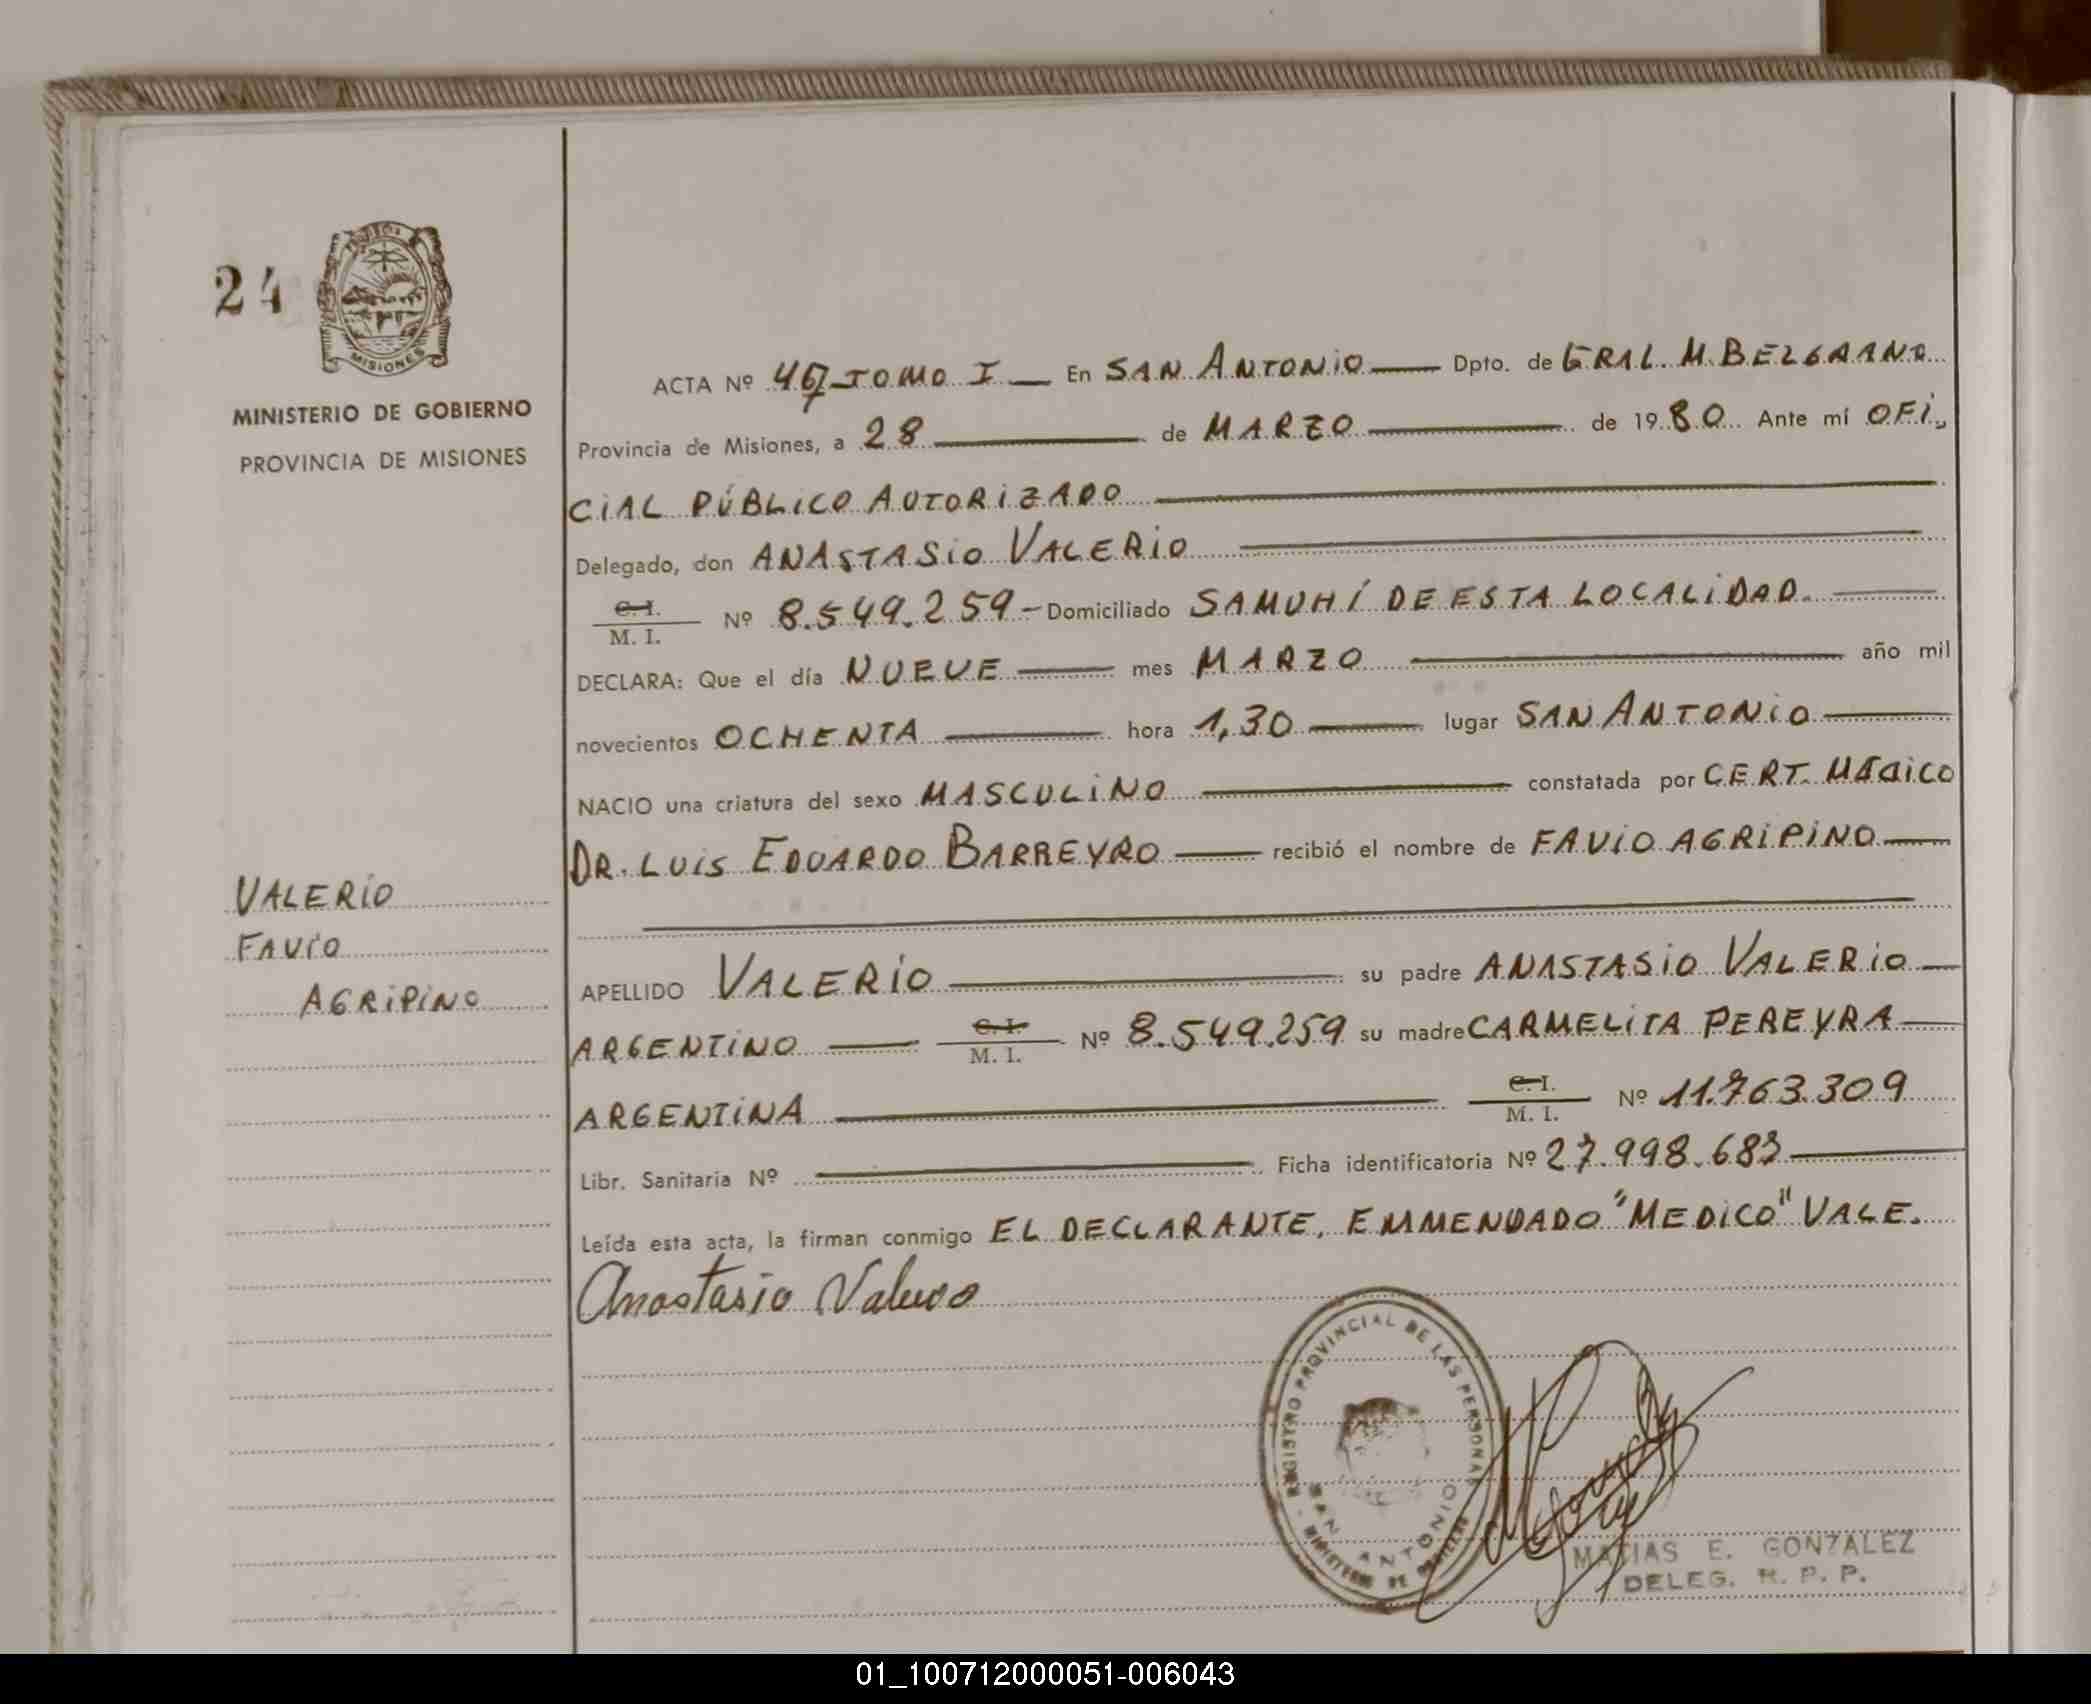 24
MISIONES
MINISTERIO DE GOBIERNO
PROVINCIA DE MISIONES
VALERIO
FAVIO
AGRIPINO
ACTA Nº TOMO I En SAN ANTONIO Dpto. de GRAL. M. BELGRANO
Provincia de Misiones, a 28 de MARZO de 1980 Ante mí OFI-
CIAL PÚBLICO AUTORIZADO
Delegado, don ANASTASIO VALERIO
C. I.
M. I. Nº 8.549.259 - Domiciliado SAMUHÍ DE ESTA LOCALIDAD.
DECLARA: Que el día NUEVE mes MARZO año mil
novecientos OCHENTA hora 1,30 lugar SAN ANTONIO
NACIO una criatura del sexo MASCULINO constatada por CERT. MÉDICO
DR. LUIS EDUARDO BARREYRO recibió el nombre de FAVIO AGRIPINO
APELLIDO VALERIO su padre ANASTASIO VALERIO
ARGENTINO C. I. M. I. Nº 8.549.259 su madre CARMELITA PEREYRA
ARGENTINA C. I. M. I. Nº 11.763.309
Libr. Sanitaria Nº Ficha identificatoria Nº 27.998.683
Leída esta acta, la firman conmigo EL DECLARANTE, EMMENDADO "MEDICO" VALE.
Anastasio Valerio
REGISTRO PROVINCIAL DE LAS PERSONAS
SAN ANTONIO
MINISTERIO DE
MATIAS E. GONZALEZ
DELEG. R. P. P.
01_100712000051-006043